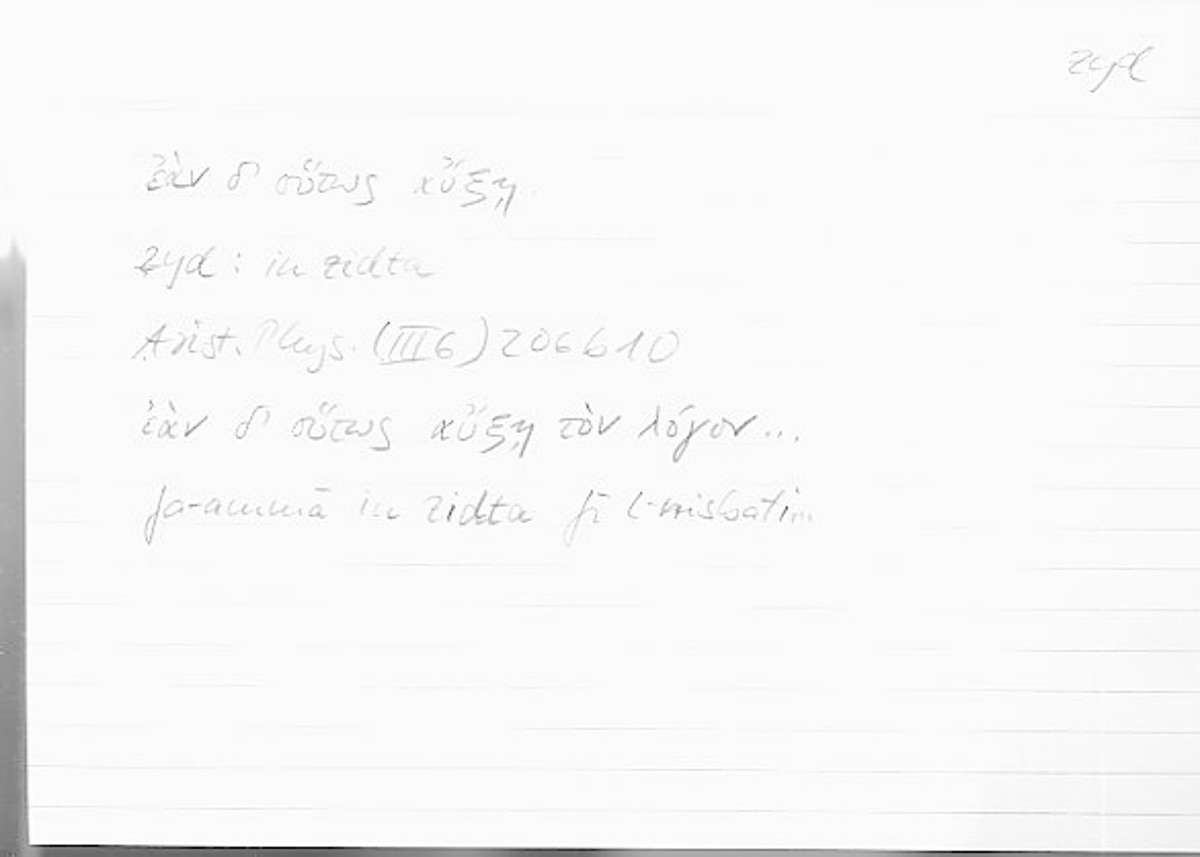 zyd
ἐὰν δ' οὕτως αὔξῃ
zyd : in zidta
Arist. Phys. (III 6) 206b10
ἐὰν δ' οὕτως αὔξῃ τὸν λόγον...
fa-ammā in zidta fī l-misbati...